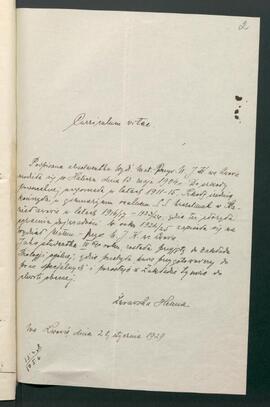 2
Curriculum vitae
Podpisana absolwentka Wydz. Mat. Przyr. U. J. K. we Lwowie
urodziła się w dnia 13 maja 1904 r. Do szkoły
powszechnej, uczęszczała w latach 1911-15. Szkołę średnią
ukończyła, w gimnazjum realnem S.S. Urszulanek w
w latach 1914/5 - gdzie też złożyła
egzamin dojrzałości. W roku 1924/25 zapisała się na
wydział Matem. - przyr. U. J. K. we Lwowie.
Jako studentka III-go roku, została przyjęta do Zakładu
Zoologji gdzie przebyła kurs przygotowawczy do
prac specjalnych i pozostaje w Zakładzie tymże do
chwili obecnej.
Helena
We Lwowie, dnia 21 stycznia 1929